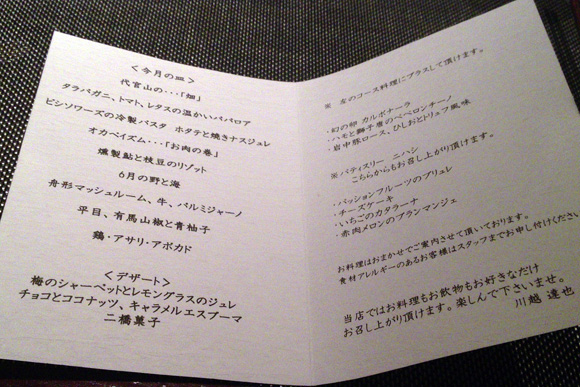 ＜今月の皿＞
代官山の・・・「畑」
タラバガニ、トマト、レタスの温かいババロア
ビシソワーズの冷製パスタ ホタテと焼きナスジュレ
オカベイズム・・・「お肉の巻」
燻製鮎と枝豆のリゾット
6月の野と海
舟形マッシュルーム、牛、パルミジャーノ
平目、有馬山椒と青柚子
鶏・アサリ・アボカド
＜デザート＞
梅のシャーベットとレモングラスのジュレ
チョコとココナッツ、キャラメルエスプーマ
二橋菓子
※ 左のコース料理にプラスして頂けます。
・幻の卵 カルボナーラ
・ハモと獅子唐のペペロンチーノ
・岩中豚ロース、ひしおとトリュフ風味
※パティスリー ニハシ
こちらからもお召し上がり頂けます。
・パッションフルーツのブリュレ
・チーズケーキ
・いちごのカタラーナ
・赤肉メロンのブランマンジェ
お料理はおまかせでご案内させて頂いております。
食材アレルギーのあるお客様はスタッフまでお申し付けください
当店ではお料理もお飲物もお好きなだけ
お召し上がり頂けます。楽しんで下さいませ。
川越 達也